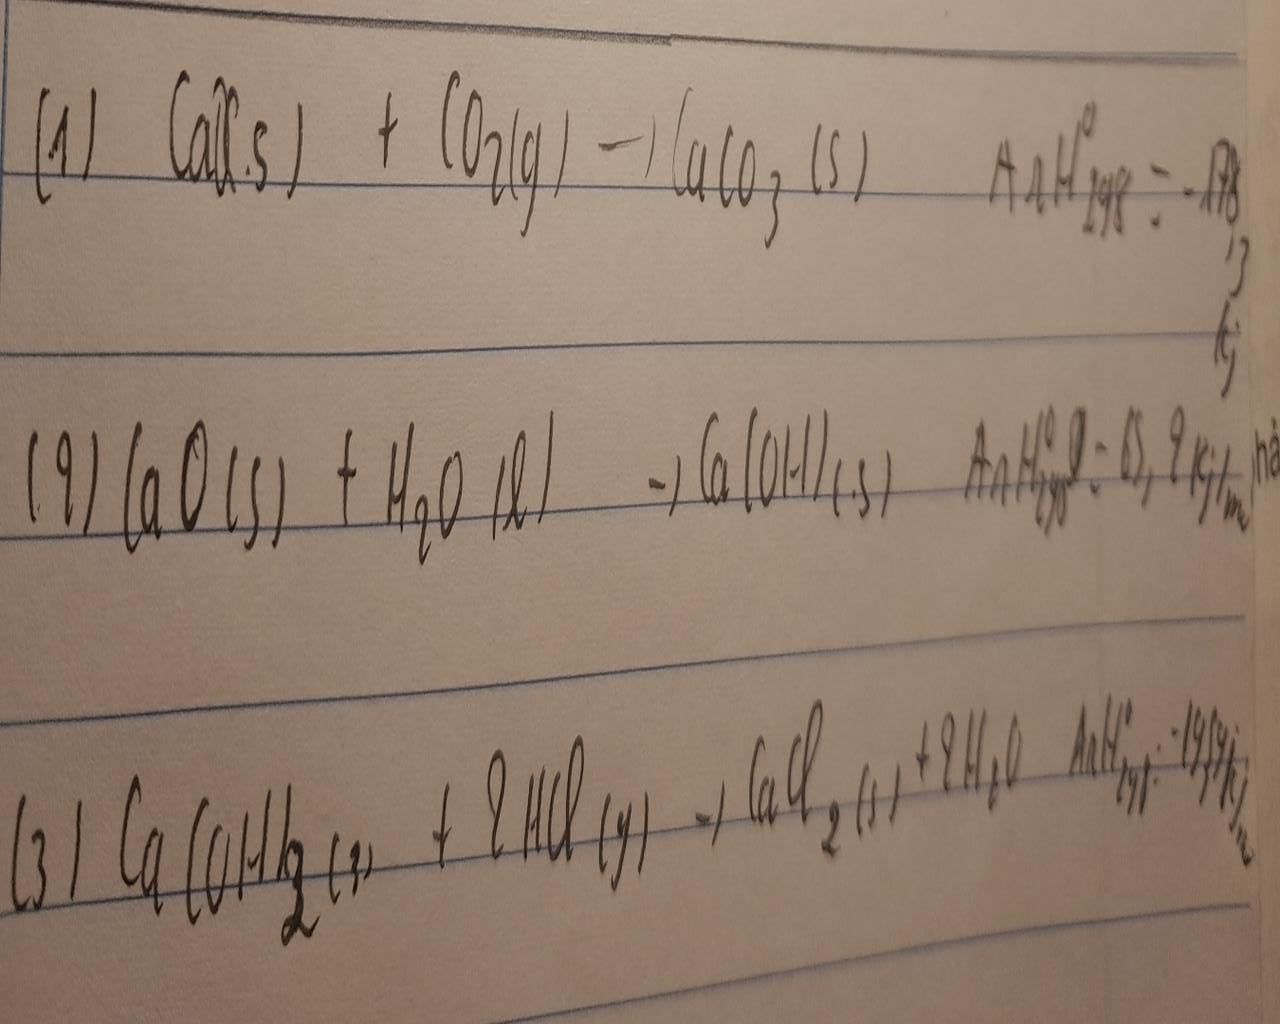 (1) CaO(s) + CO2(g) → CaCO3 (s) ΔrH⁰298 = -178,3 kj
(2) CaO(s) + H2O (l) → Ca(OH)(s) ΔrH⁰298 = 65,2 Kj/m
(3) Ca(OH)2(s) + 2HCl(g) → CaCl2(s) + 2H2O ΔrH⁰298